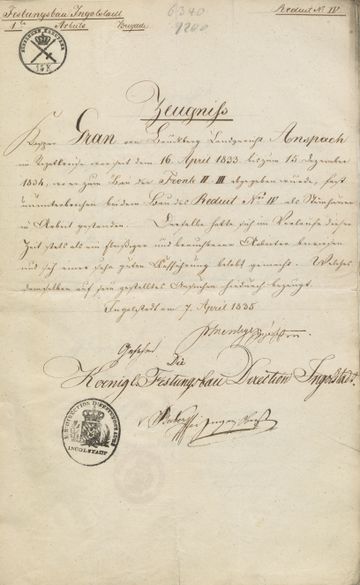 Festungsbau Ingolstadt
1te Arbeits Brigade
6340
1200
Reduit No. IV
Zeugniß
Gran von Landgerichts Anspach
im vom 16. April 1833 bis zum 15 Dezember
1834, wo er zum Bau der Fronte II-III abgegeben wurde, fast
ununterbrochen bei dem Bau des Reduit No. IV als Steinhauer
in Arbeit gestanden. Derselbe hatte sich im Verlaufe dieser
Zeit stets als ein fleißiger und Arbeiter bewiesen
und sich einer sehr guten Aufführung beliebt gemacht. Welches
demselben auf sein gestelltes Ansuchen hiedurch bezeugt.
Ingolstadt am 7. April 1835
Gesehen
Die
Koenigl. Festungsbau Direction Ingolstadt.
INGOLSTADT